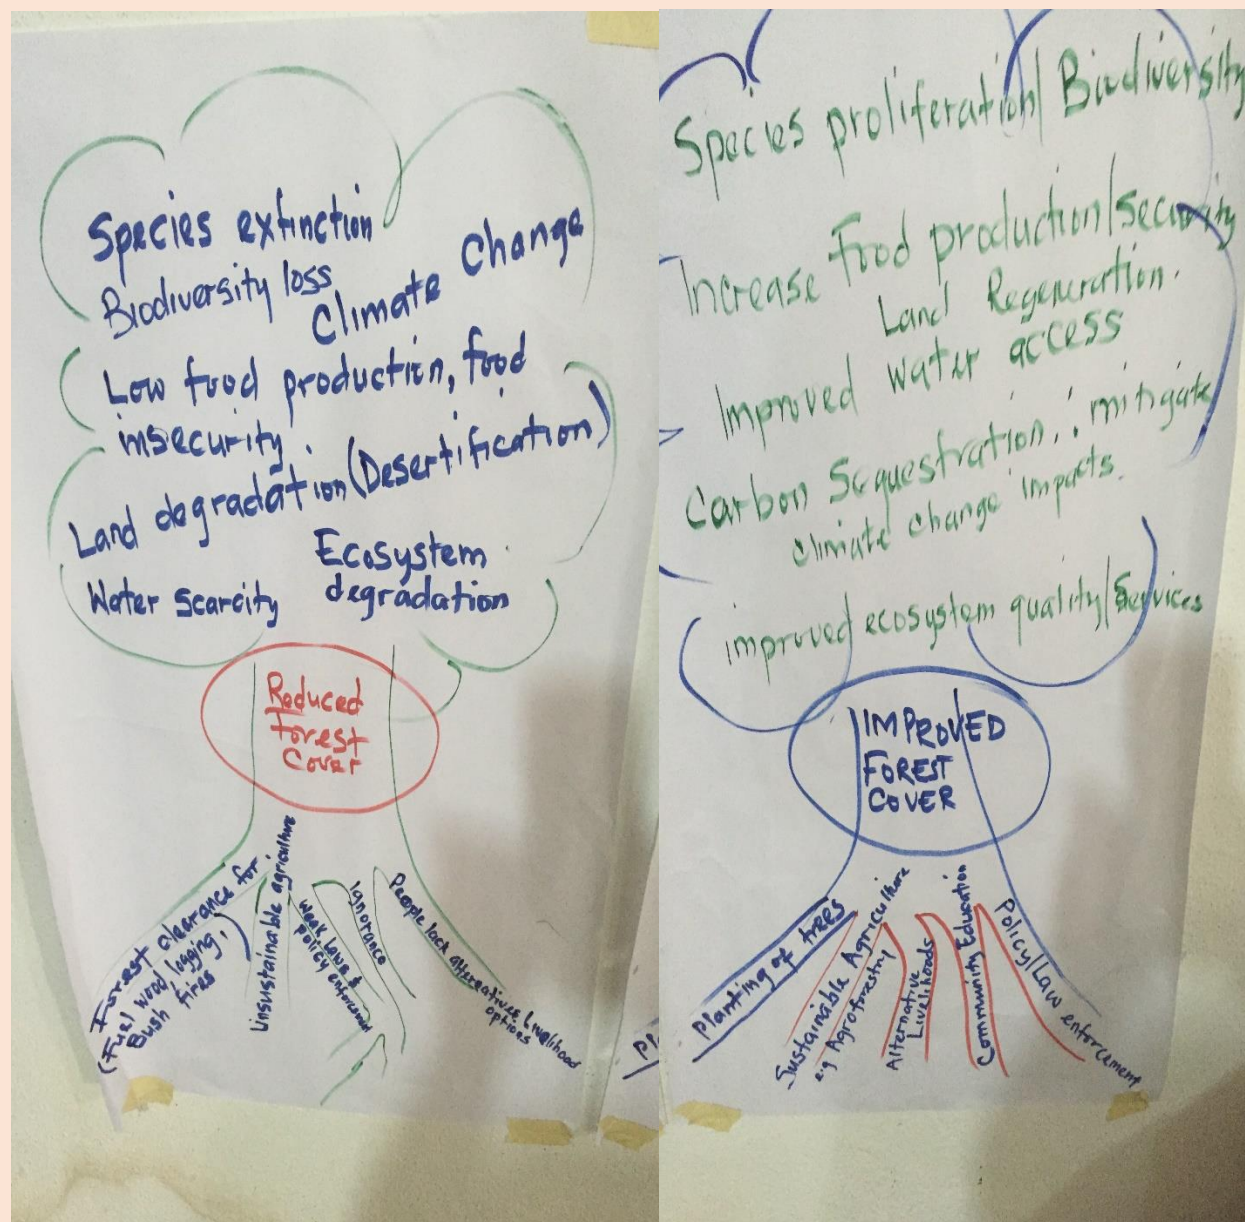 Species extinction
Biodiversity loss
Climate Change
Low food production, food
insecurity.
Land degradation (Desertification)
Ecosystem
degradation
Water Scarcity
Reduced
Forest
Cover
Forest clearance for
(Fuel wood, logging,
Bush fires)
Unsustainable agriculture
Weak Laws &
policy enforcement
Ignorance
People lack alternatives Livelihood
options
Species proliferation/ Biodiversity
Increase Food production/security
Land Regeneration.
Improved water access
Carbon Sequestration, ∴ mitigate
climate change impacts.
improved ecosystem quality/Services
IMPROVED
FOREST
COVER
Planting of trees
Sustainable Agriculture
e.g Agroforestry
Alternative
Livelihoods
Community Education
Policy/Law enforcement
Pl